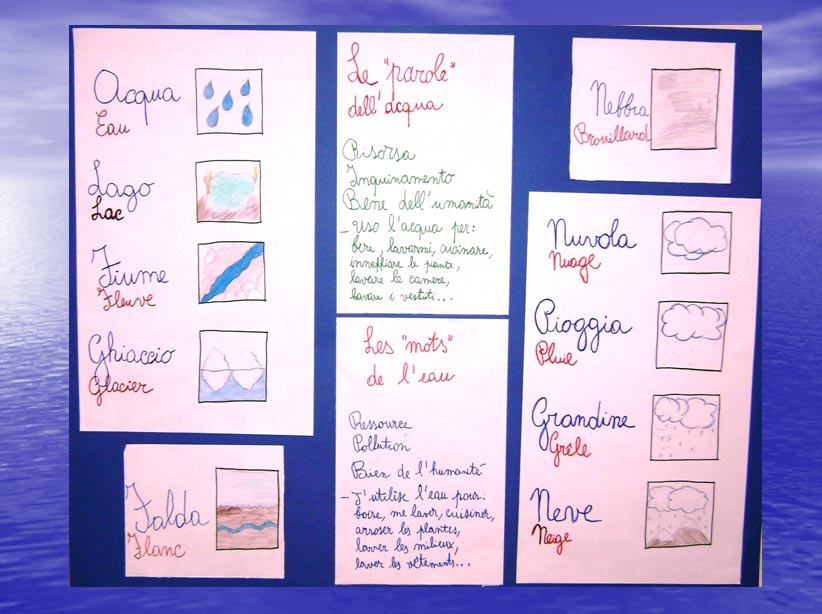 Acqua
Eau
Lago
Lac
Fiume
Fleuve
Ghiaccio
Glacier
Falda
Flanc
Le "parole"
dell'acqua
Risorsa
Inquinamento
Bene dell'umanità
- Uso l'acqua per:
bere, lavarmi, cucinare,
innaffiare le piante,
lavare le camere,
lavare i vestiti...
Les "mots"
de l'eau
Ressource
Pollution
Bien de l'humanité
- J'utilise l'eau pour:
boire, me laver, cuisiner,
arroser les plantes,
laver les milieux,
laver les vêtements...
Nebbia
Brouillard
Nuvola
Nuage
Pioggia
Pluie
Grandine
Grêle
Neve
Neige